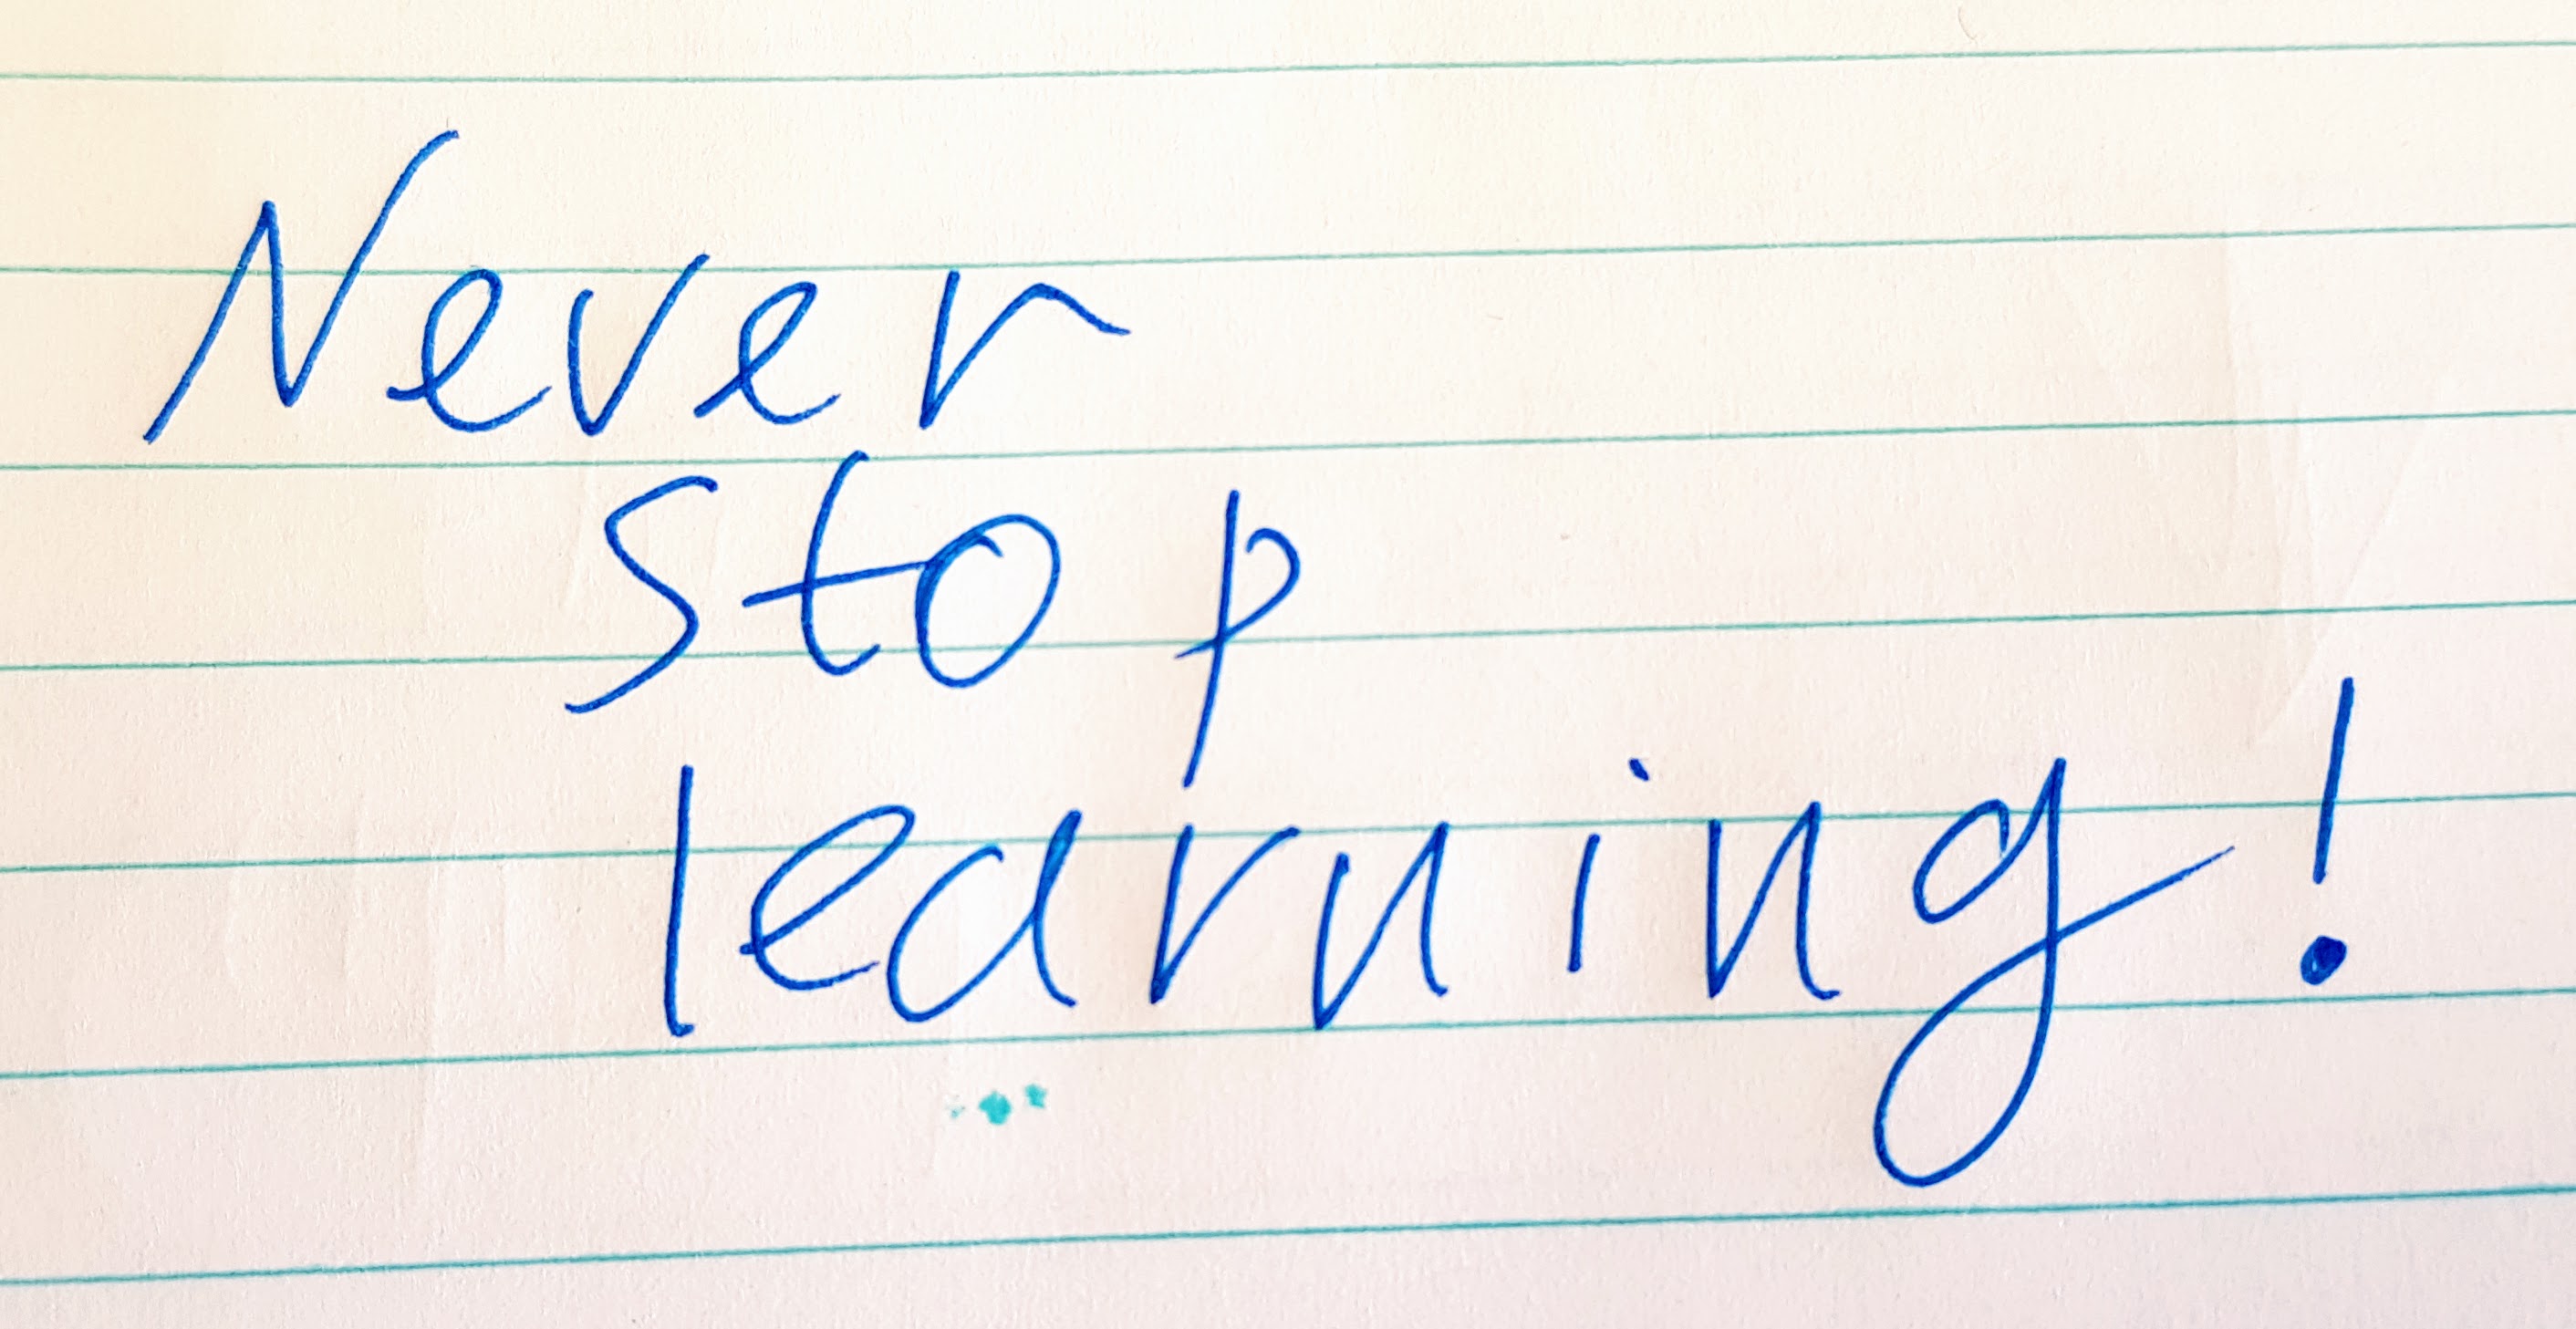 Never
stop
learning!